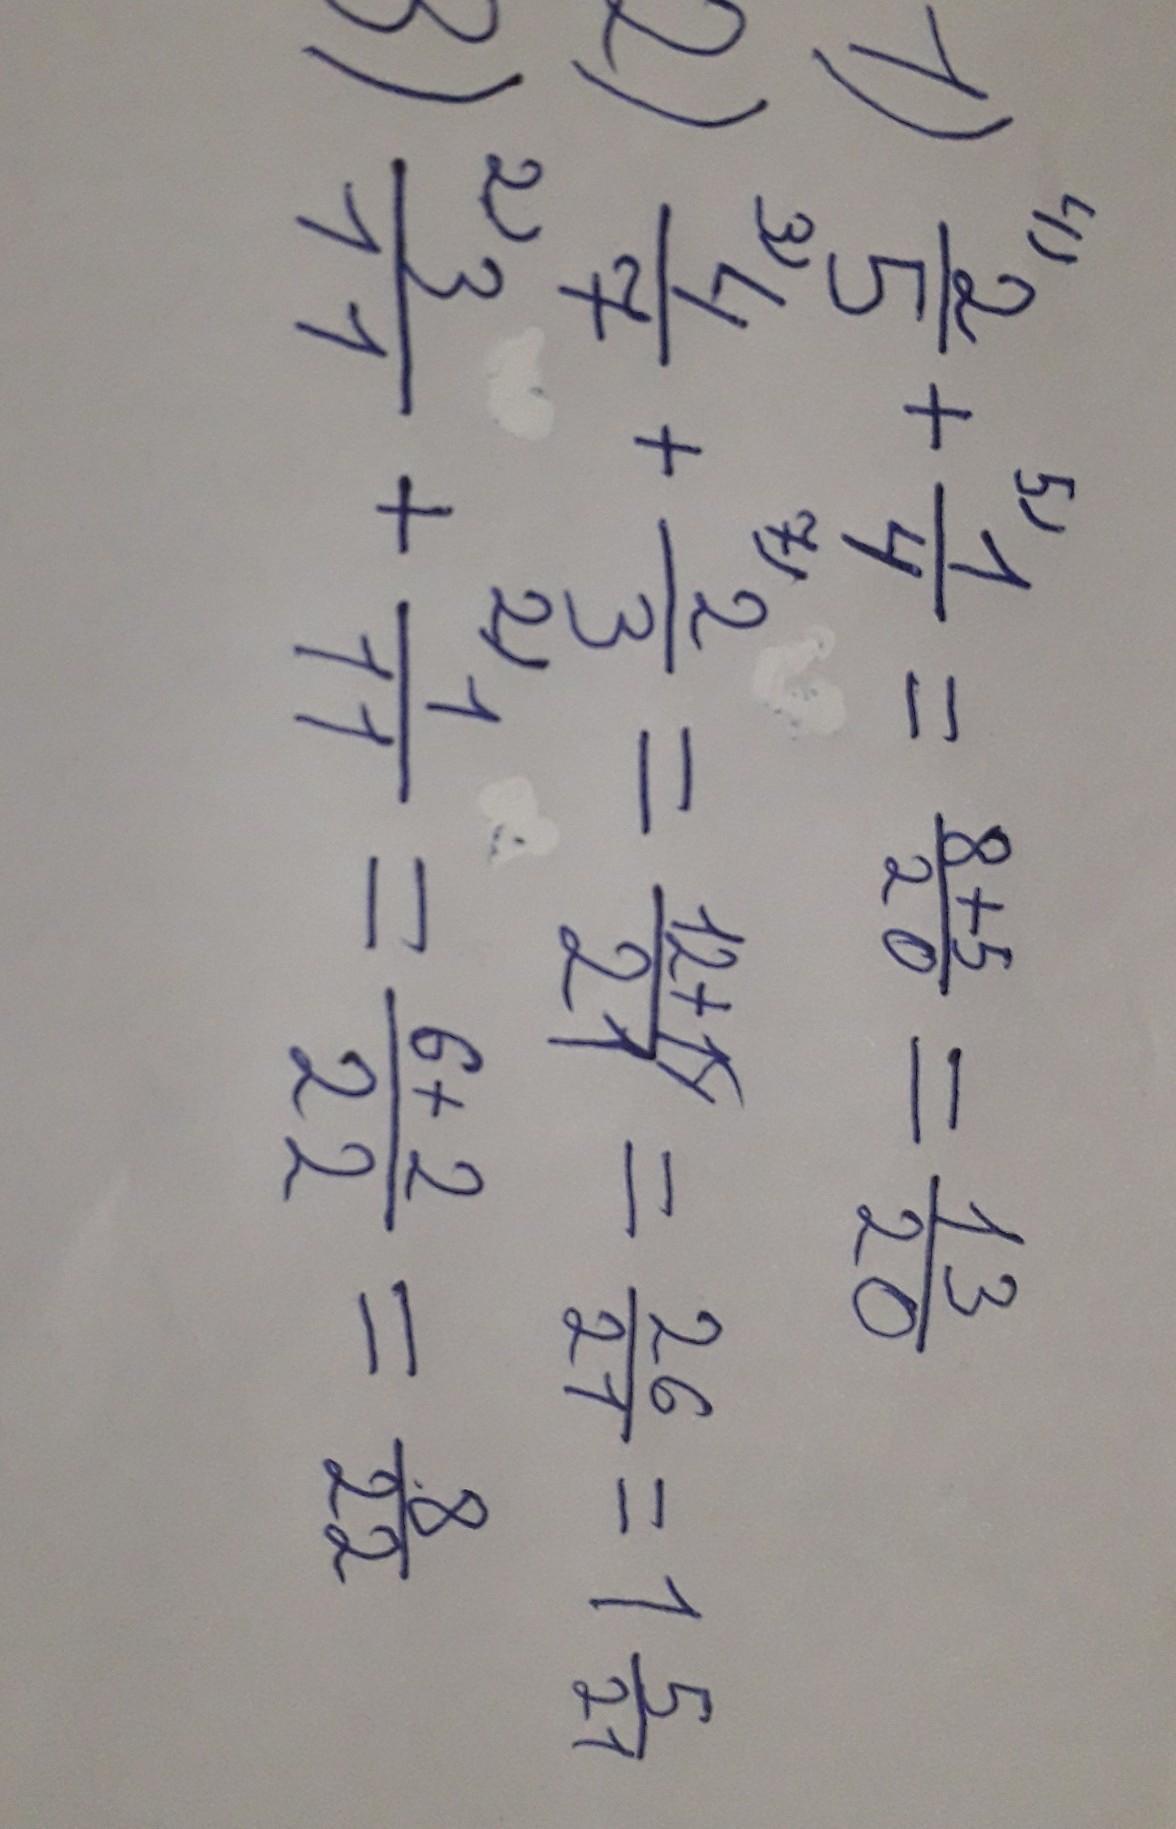 1) ⁴⁾2/5 + ⁵⁾1/4 = 8+5/20 = 13/20
2) ³⁾4/7 + ⁷⁾2/3 = 12+14/21 = 26/21 = 1 5/21
3) ²⁾3/11 + ²⁾1/11 = 6+2/22 = 8/22